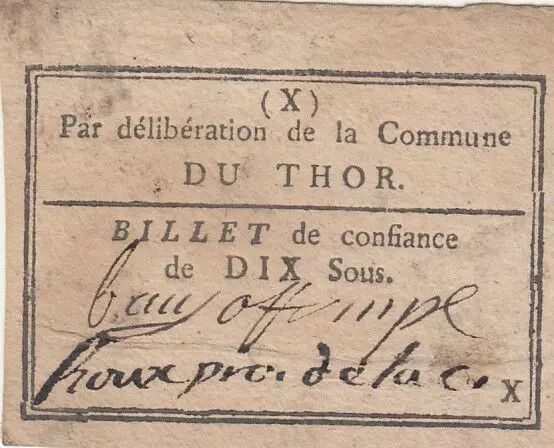 (X)
Par délibération de la Commune
DU THOR.
BILLET de confiance
de DIX Sous.
off mpl
houx pro. de la c. X